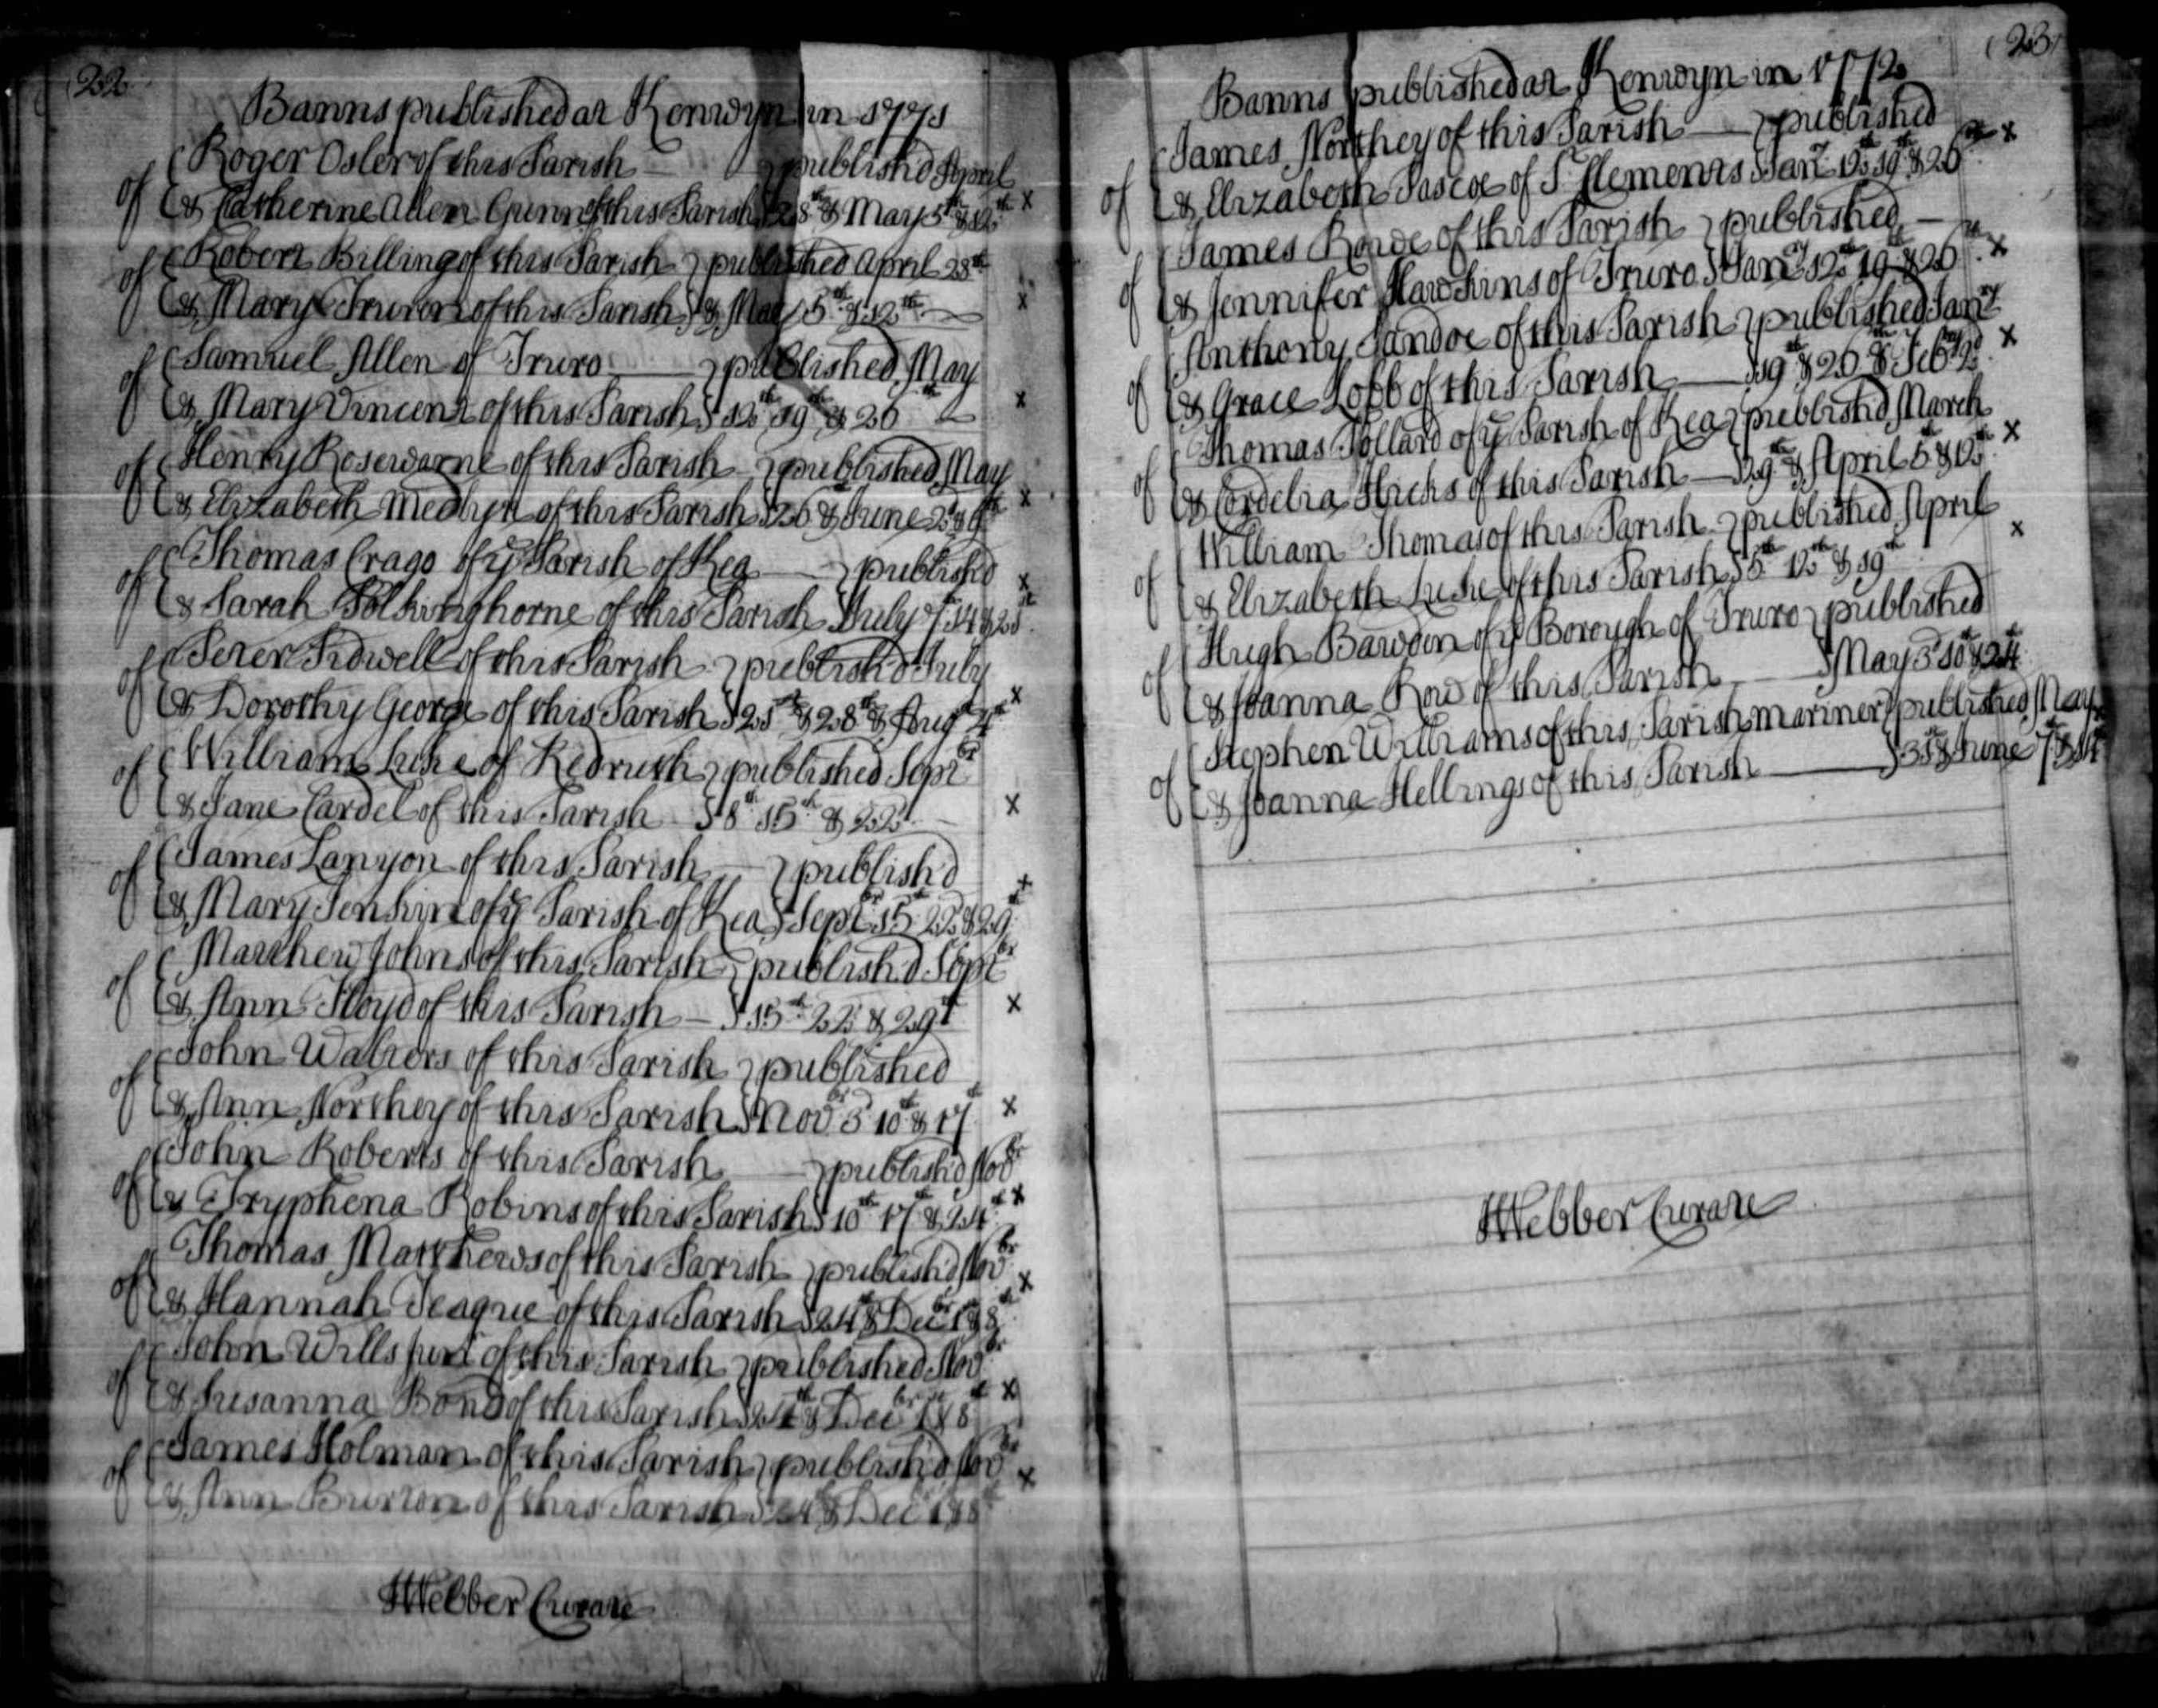 (22)
Banns published at Kenwyn in 1771
of Roger Osler of this Parish publish'd April
& Catherine Allen Gunn of this Parish 28th & May 5th & 12th x
of Robert Billing of this Parish published April 28th
& Mary Truron of this Parish & May 5th & 12th x
of Samuel Allen of Truro published May
& Mary Vincent of this Parish 12th 19th & 26th x
of Henry Rosewarne of this Parish published May
& Elizabeth Medlyn of this Parish 26 & June 2d & 9th x
of Thomas Crago of ye Parish of Kea publish'd
& Sarah Polkinghorne of this Parish July 7th 14 & 21st x
of Peter Tidwell of this Parish publish'd July
& Dorothy George of this Parish 21st & 28th & Augst 4th x
of William Luke of Redruth published Septbr
& Jane Cardel of this Parish 8th 15th & 22d x
of James Lanyon of this Parish publish'd
& Mary Jenkin of ye Parish of Kea Septbr 15th 22d & 29th x
of Matthew Johns of this Parish publish'd Septbr
& Ann Floyd of this Parish 15th 22d & 29th x
of John Walters of this Parish published
& Ann Northey of this Parish Novbr 3d 10th & 17th x
of John Roberts of this Parish publish'd Novbr
& Tryphena Robins of this Parish 10th 17th & 24th x
of Thomas Matthews of this Parish publish'd Novbr
& Hannah Teague of this Parish 24th & Decbr 1 & 8th x
of John Wills junr of this Parish published Novbr
& Susanna Bond of this Parish 24th & Decbr 1st & 8th x
of James Holman of this Parish publish'd Novbr
& Ann Burton of this Parish 24th & Decbr 1 & 8th x
Webber Curate
(23)
Banns published at Kenwyn in 1772
of James Northey of this Parish published
& Elizabeth Pascoe of St Clements Janry 12th 19th & 26th x
of James Rowe of this Parish published
& Jennifer Hawkins of Truro Janry 12th 19th & 26th x
of Anthony Sandoe of this Parish published Janry
& Grace Lobb of this Parish 19th & 26th & Febry 2d x
of Thomas Pollard of ye Parish of Kea publish'd March
& Cordelia Hicks of this Parish 29th & April 5th & 12th x
of William Thomas of this Parish published April
& Elizabeth Luke of this Parish 5th 12th & 19th x
of Hugh Bawden of ye Borough of Truro published
& Joanna Row of this Parish May 3d 10th & 24th
of Stephen Williams of this Parish mariner published May
& Joanna Hellings of this Parish 31st & June 7th & 14th
Webber Curate